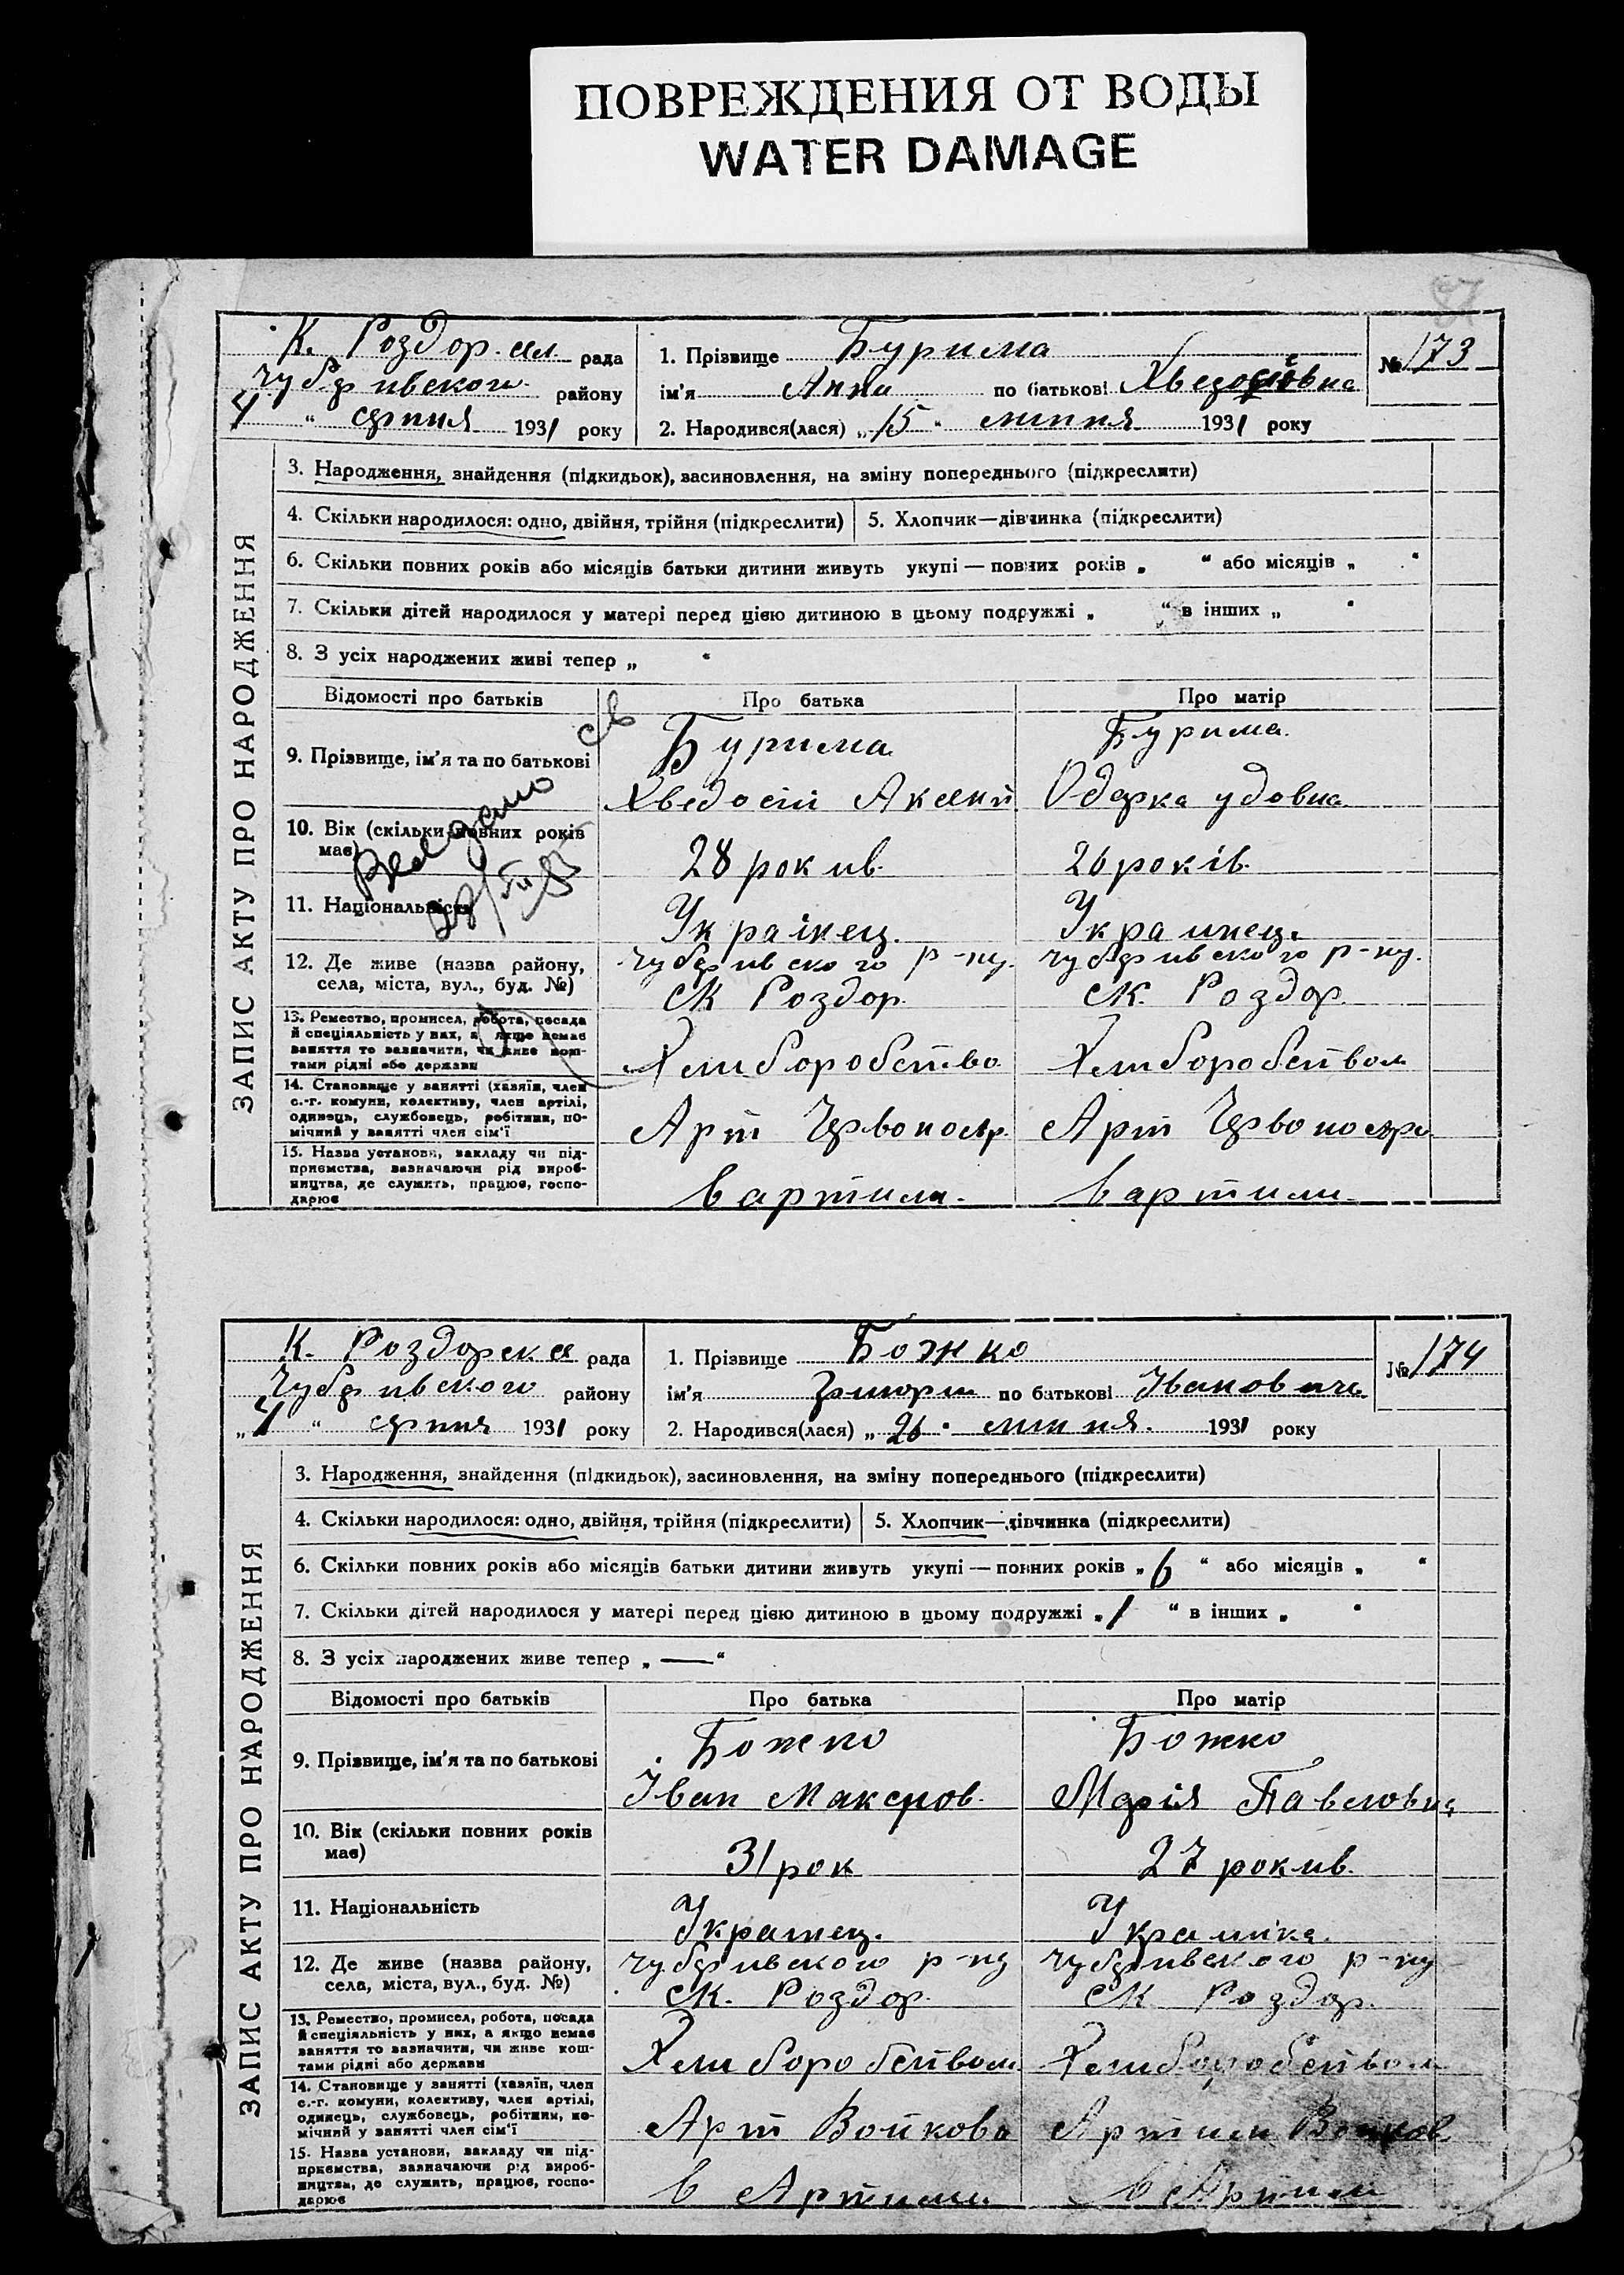 ПОВРЕЖДЕНИЯ ОТ ВОДЫ
WATER DAMAGE
К. Роздор. рада
Чубарівского району
4 " серпня 1931 року
1. Прізвище Бурима
ім'я Анна по батькові
2. Народився(лася) „ 15 " липня 1931 року
№ 173
ЗАПИС АКТУ ПРО НАРОДЖЕННЯ
3. Народження, знайдення (підкидьок), засиновлення, на зміну попереднього (підкреслити)
4. Скільки народилося: одно, двійня, трійня (підкреслити) 5. Хлопчик—дівчинка (підкреслити)
6. Скільки повних років або місяців батьки дитини живуть укупі — повних років „ " або місяців „ "
7. Скільки дітей народилося у матері перед цією дитиною в цьому подружжі „ " в інших „ "
8. З усіх народжених живі тепер „ "
Відомості про батьків Про батька Про матір
9. Прізвище, ім'я та по батькові
Бурима Бурима
Хведосій Одарка
10. Вік (скільки повних років має)
28 рокив 26 років
Видано св
11. Національність
Українец. Украинец.
12. Де живе (назва району, села, міста, вул., буд. №)
Чубаривского р-ну. Чубаривского р-ну.
СК Роздор. СК. Роздор.
13. Ремество, промисел, робота, посада й спеціяльність у них, а якщо немає заняття то зазначити, чи живе коштами рідні або держави
Хлиборобство Хлиборобством
14. Становище у занятті (хазяїн, член с.-г. комуни, колективу, член артілі, одинець, службовець, робітник, помічний у занятті член сім'ї
Арт Арт
15. Назва установи, закладу чи підприємства, зазначаючи рід виробництва, де служить, працює, господарює
в артили. в артили.
К. Роздорска рада
Чубаривского району
„ 4 " серпня 1931 року
1. Прізвище Божко
ім'я по батькові Іванович
2. Народився(лася) „ 26 " липня. 1931 року
№ 174
ЗАПИС АКТУ ПРО НАРОДЖЕННЯ
3. Народження, знайдення (підкидьок), засиновлення, на зміну попереднього (підкреслити)
4. Скільки народилося: одно, двійня, трійня (підкреслити) 5. Хлопчик—дівчинка (підкреслити)
6. Скільки повних років або місяців батьки дитини живуть укупі — повних років „ 6 " або місяців „ "
7. Скільки дітей народилося у матері перед цією дитиною в цьому подружжі „ 1 " в інших „ "
8. З усіх народжених живе тепер „ — "
Відомості про батьків Про батька Про матір
9. Прізвище, ім'я та по батькові
Божко Божко
Іван Макаров. Марія Павловна
10. Вік (скільки повних років має)
31 рок 27 рокив.
11. Національність
Украинец. Украинка.
12. Де живе (назва району, села, міста, вул., буд. №)
Чубаривского р-ну Чубаривского р-ну
СК. Роздор. СК Роздор.
13. Ремество, промисел, робота, посада й спеціяльність у них, а якщо немає заняття то зазначити, чи живе коштами рідні або держави
Хлиборобством Хлиборобством
14. Становище у занятті (хазяїн, член с.-г. комуни, колективу, член артілі, одинець, службовець, робітник, помічний у занятті член сім'ї
Арт Войкова Артили Войков
15. Назва установи, закладу чи підприємства, зазначаючи рід виробництва, де служить, працює, господарює
в Артили. в Артили